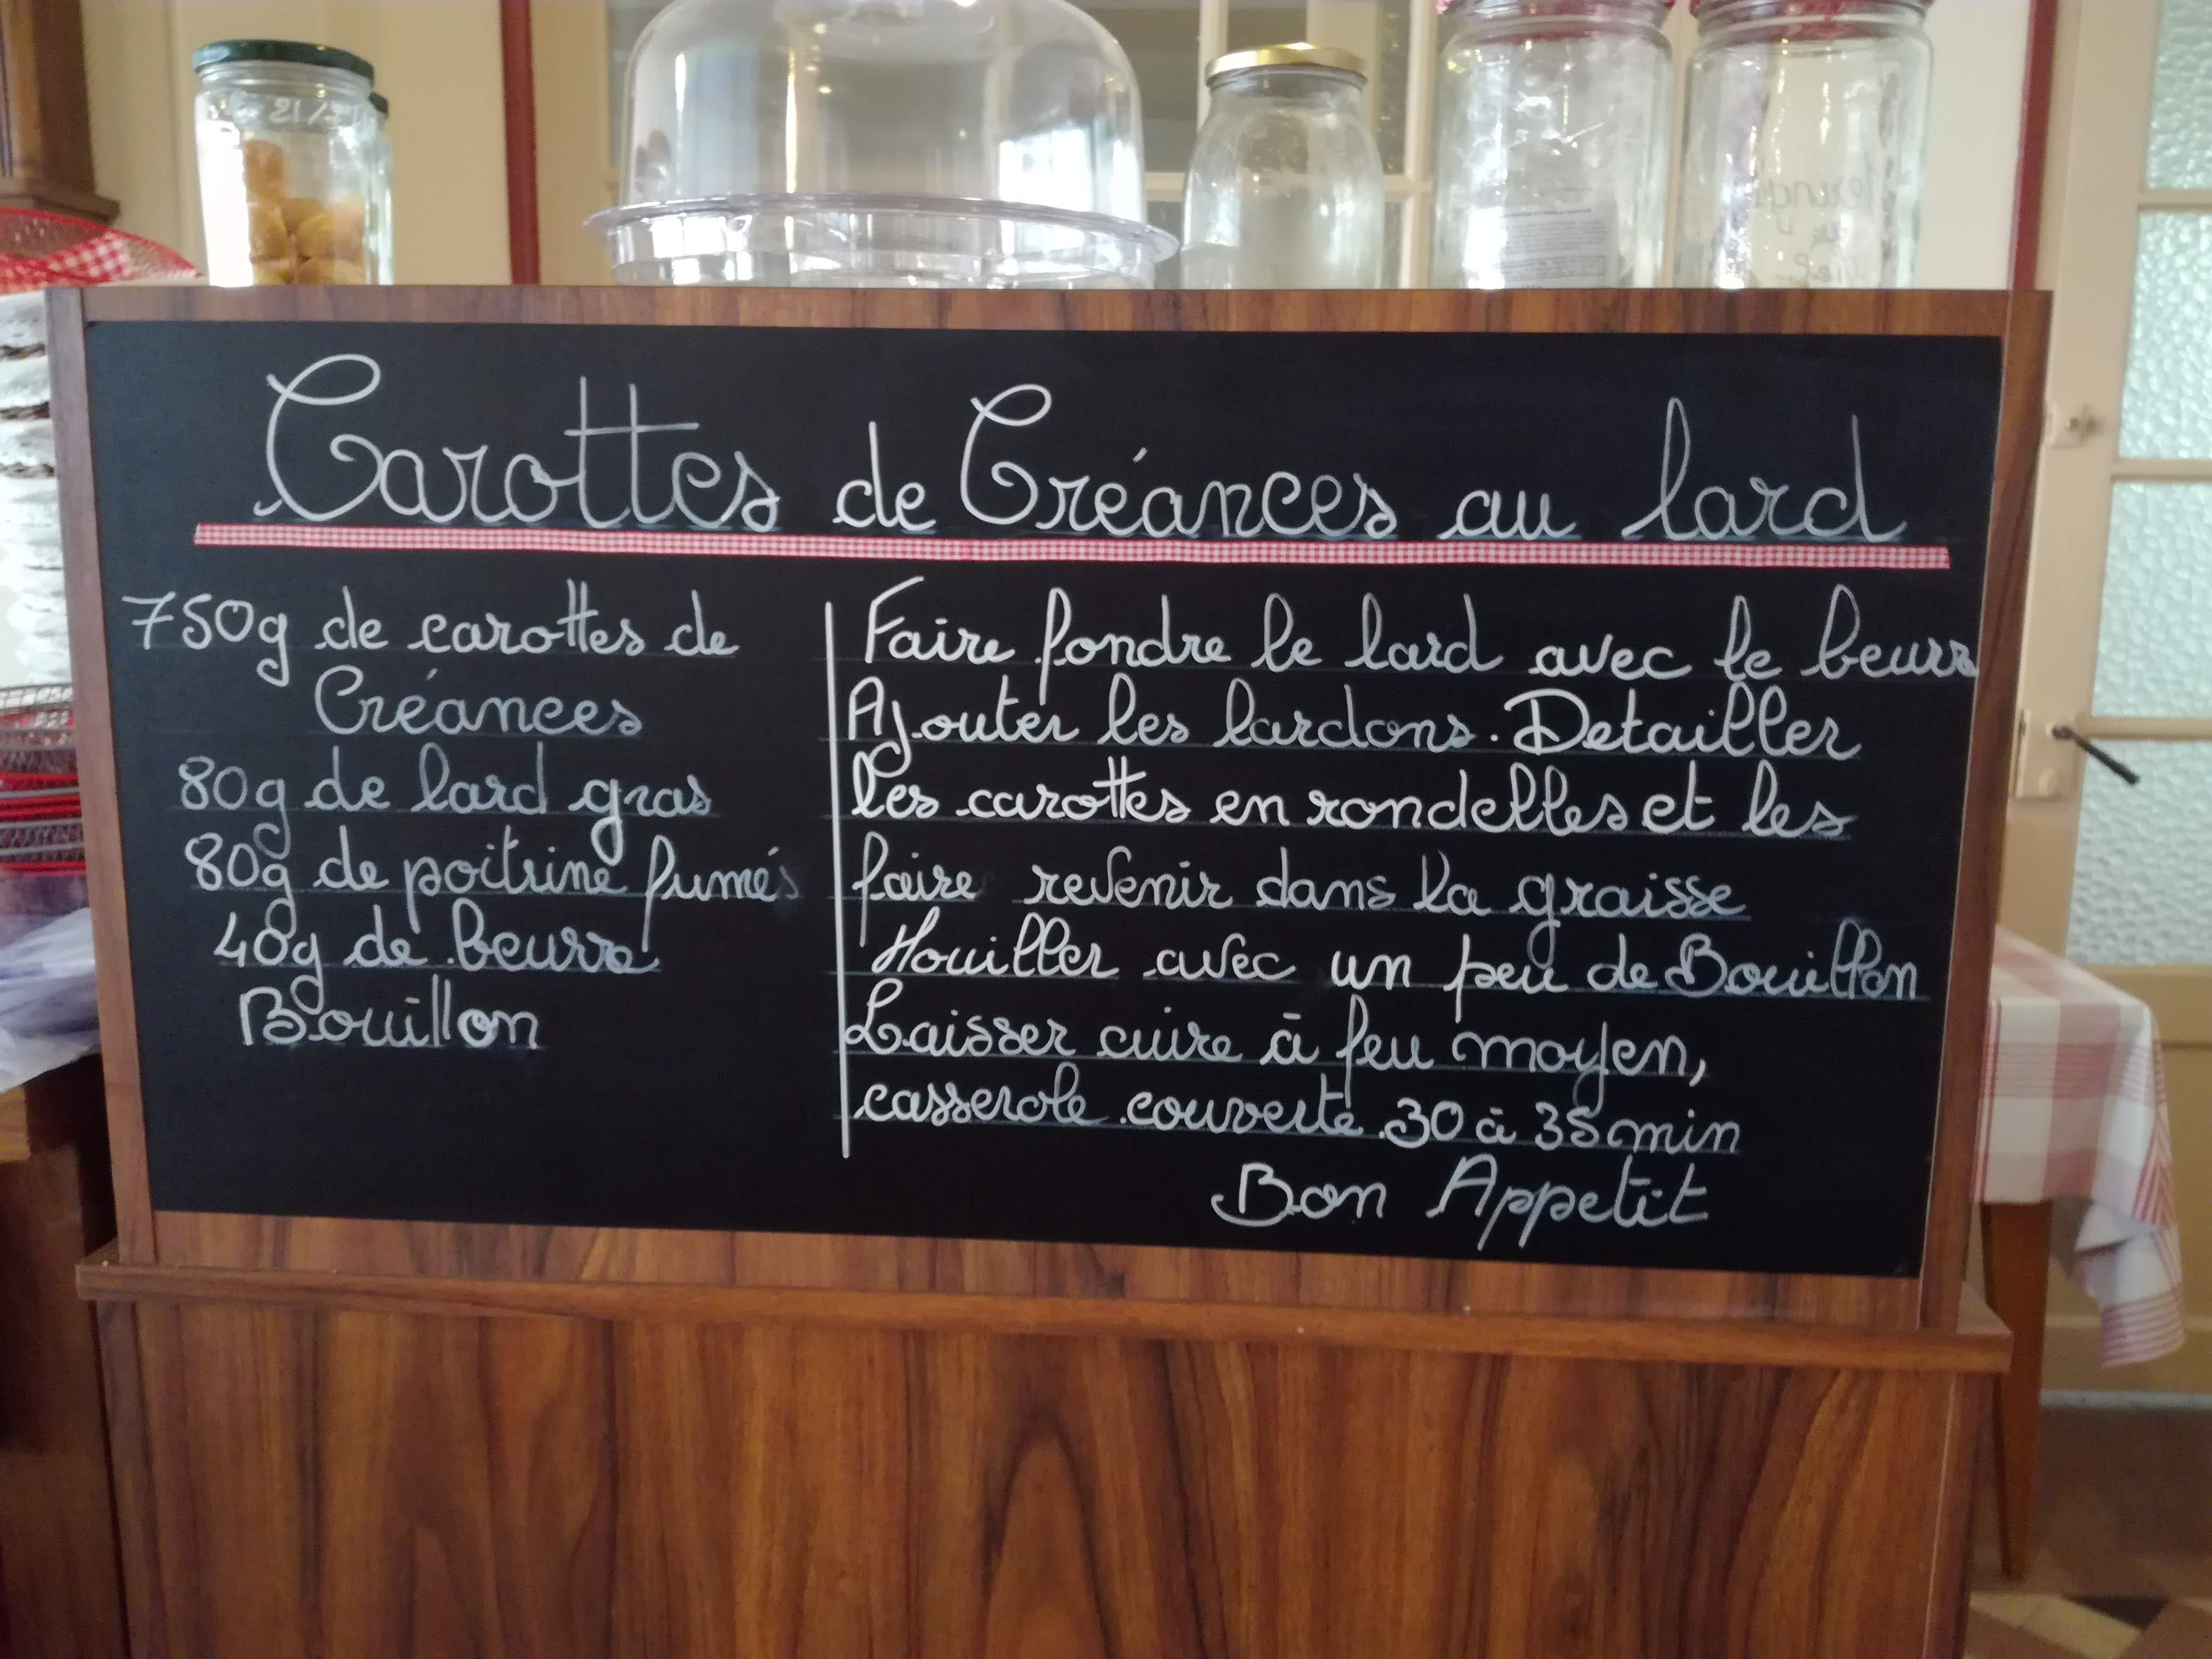 Carottes de Créances au lard
750g de carottes de
Créances
80g de lard gras
80g de poitrine fumés
40g de beurre
Bouillon
Faire fondre le lard avec le beurre
Ajouter les lardons. Detailler
les carottes en rondelles et les
faire revenir dans la graisse
Mouiller avec un peu de Bouillon
Laisser cuire à feu moyen,
casserole couverte 30 à 35min
Bon Appetit